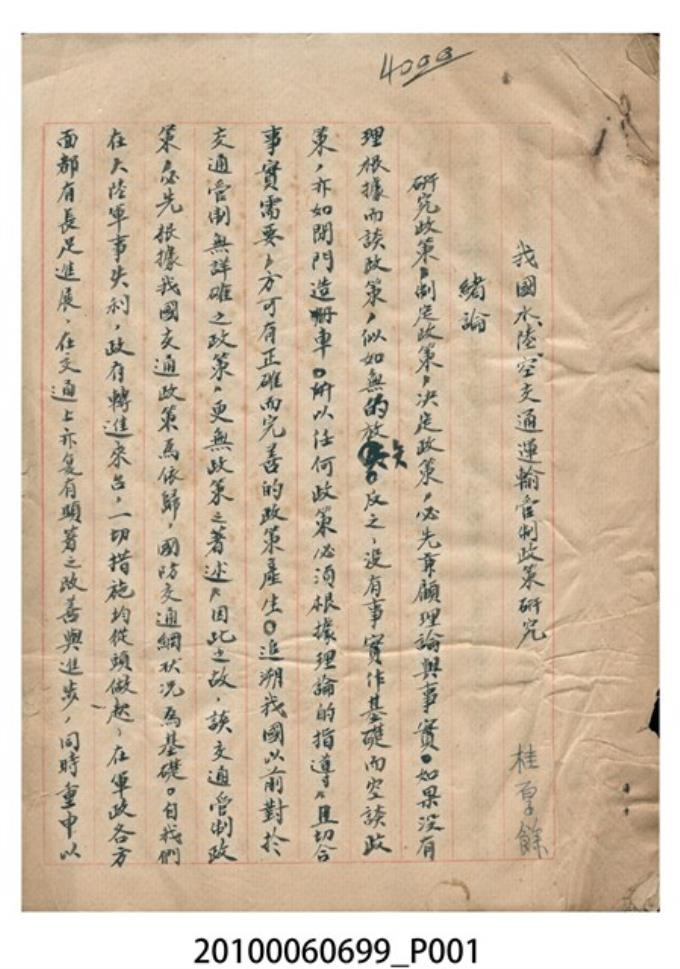 4000
我國水陸空交通運輸管制政策研究
桂厚餘
緒論
研究政策,制定政策,決定政策,必先兼顧理論與事實。如果沒有
理根據而談政策,似如無的放矢。反之、沒有事實作基礎而空談政
策,亦如閉門造車。所以任何政策必須根據理論的指導,且切合
事實需要,方可有正確而完善的政策產生。追溯我國以前對於
交通管制無詳確之政策,更無政策之著述,因此之故,談交通管制政
策,必先根據我國交通政策為依歸,國防交通網狀況為基礎。自我們
在大陸軍事失利,政府轉進來台,一切措施均從頭做起、在軍政各方
面都有長足進展、在交通上亦复有顯著之改善與進步,同時重申以
20100060699_P001